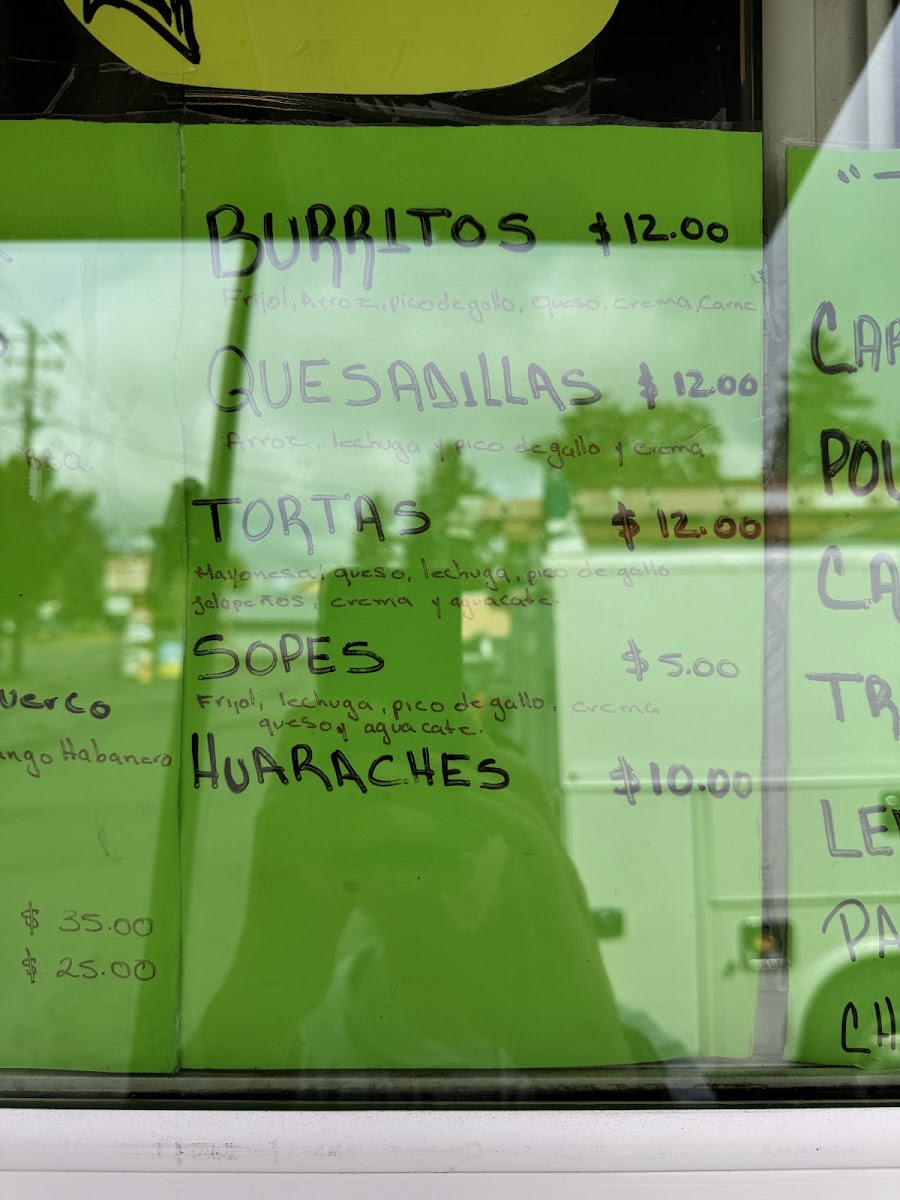 BURRITOS $12.00
Frijol, Arroz, pico de gallo, queso, crema, Carne
QUESADILLAS $12.00
Arroz, lechuga y pico de gallo y crema
TORTAS $12.00
Mayonesa, queso, lechuga, pico de gallo
Jalapeños, crema y aguacate.
SOPES $5.00
Frijol, lechuga, pico de gallo, crema
queso y aguacate.
HUARACHES $10.00
BBQ.
uerco
ango Habanero
$ 35.00
$ 25.00
CAR
POL
CA
TR
LE
PA
CH